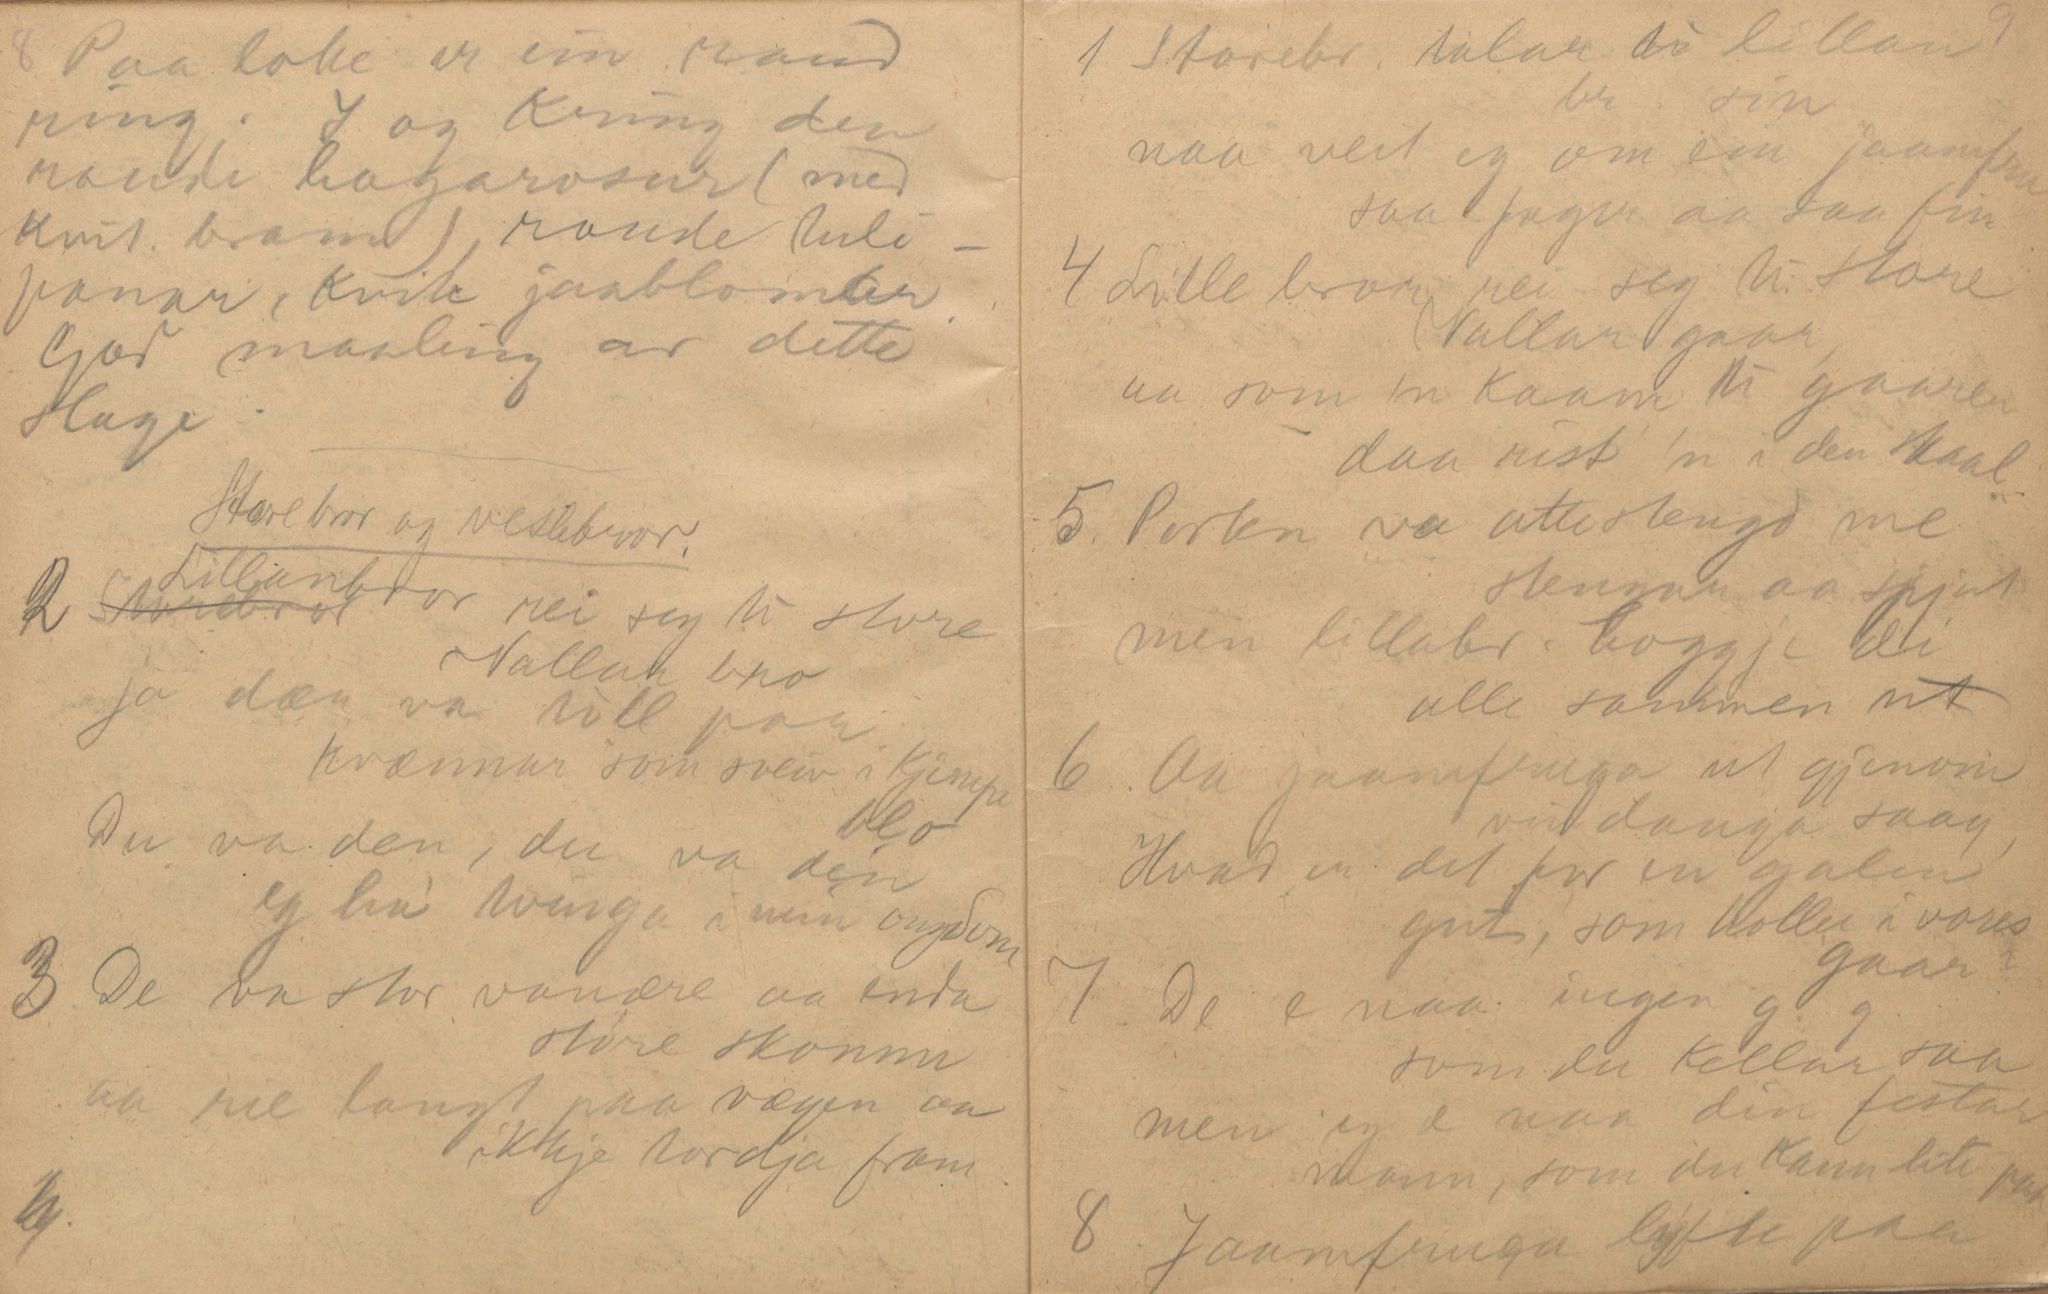 8
Paa loke er ein raud
ring. I og kring den
raude hagarosur (med
kvit bram), raude tuli-
panar, kvite jaablomter.
God maaling av dette
slage.
Storebror og veslebror.
Lillanbror
2 Storebror rei seg ti store
Vallar bro
ja dæn va
paa
kvænnar som sveiv i kjempe
blo
Du va den, du va den
eg ha tvinga i min ongdom
3 De va stor vanære aa enda
store skomm
aa rie langt paa vægen aa
ikkje tordja fram
4.
9
1 Storebr. talar ti lillan
br sin
naa veit eg om ein jaamfru
saa fager aa saa fin
4 Lillebror rei seg ti store
Vallar gaar,
aa som 'n kaam ti gaaren
daa rist 'n i den staal.
5. Porten va attestengd me
stengar aa spjut
men lillabr. hoggje dei
alle sammen ut
6. Aa jaamfruga ut gjenom
vindauga saag,
Hvad er det for en galen
gut, som holler i vores
gaar?
7 De e naa ingen g. g.
som du kallar saa
men eg e naa din festar
mann, som du kann lite paa
8 Jaamfruga lyfte paa